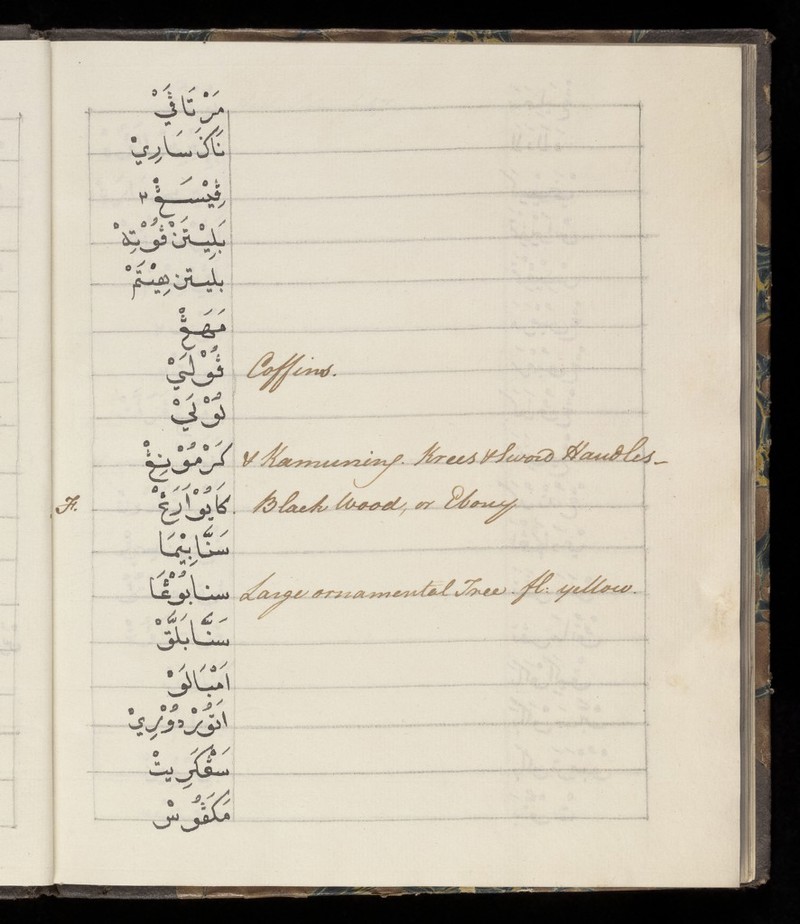 مَرْتَاڤَيْ
نَاݢَسَارِيْ
ڤِيْسَڠْ٢
بَلِيْتَنْ ڤُوْتِهْ
بليتن هِيْتَمْ
مَهَڠْ
ڤُوْلَيْ Coffins.
لَوْلَيْ
كَرْمُوْنِڠْ & Kamuning. Krees & Sword Handles -
F. كَايُوْ اَرَڠْ Black Wood, or Ebony
سَنَّا بِيْمَا
سنا بُوْڠَا Large ornamental Tree. fl: yellow.
سَنَّا بَلَّقْ
اَمْبَالَوْ
اَتُوْرْ دُوْرِيْ
سَڠْكَرِيتْ
مَكَڤُوْسْ